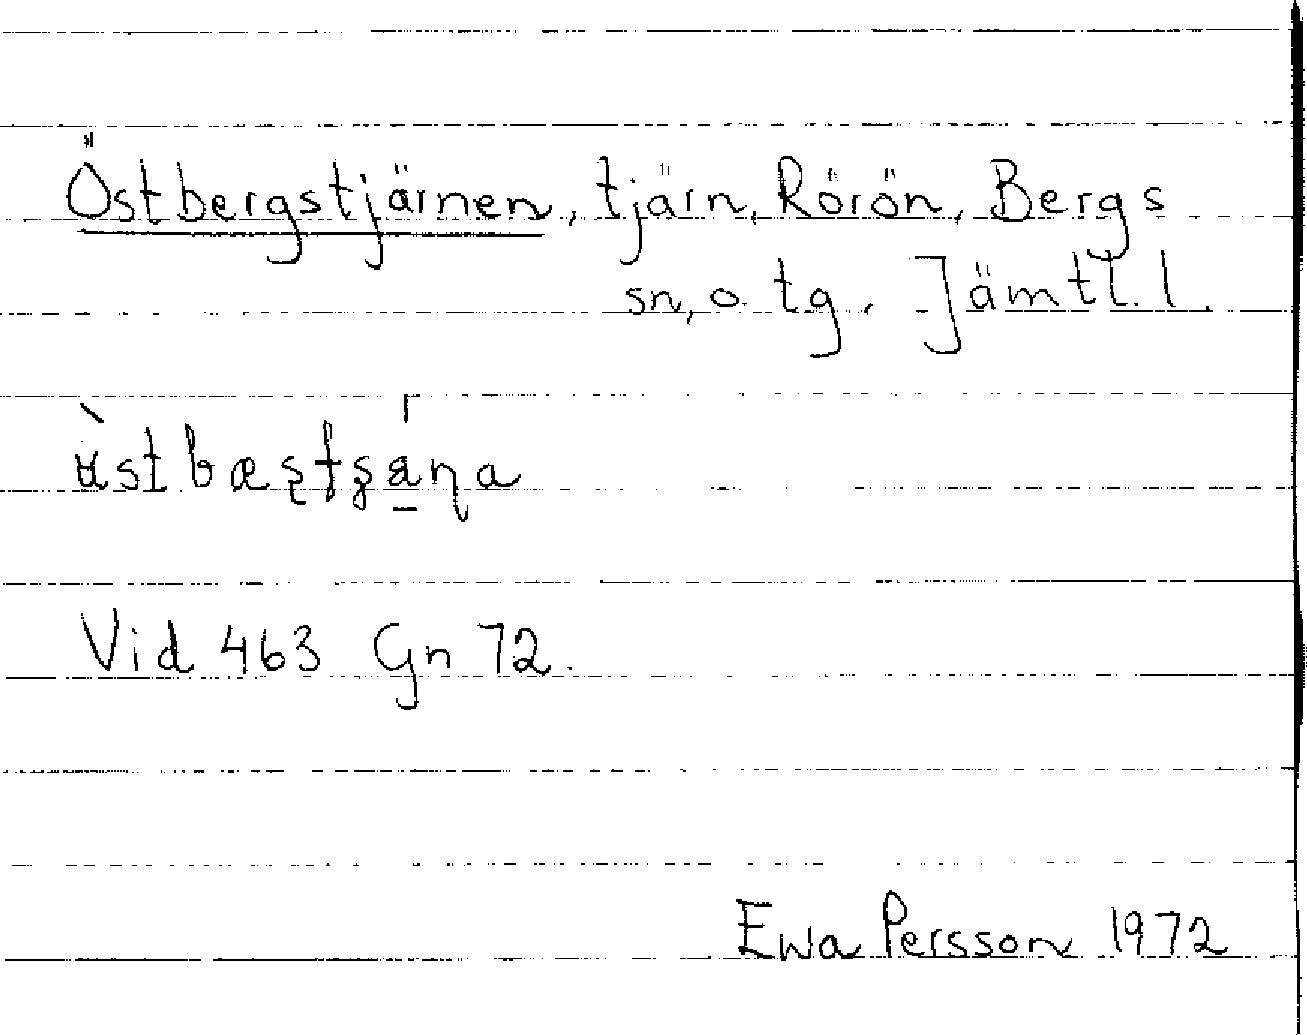 Östbergstjärnen, tjärn, Rörön, Bergs
sn, o. tg. Jämtl. l.
Vid 463 Gn 72.
Ewa Persson 1972